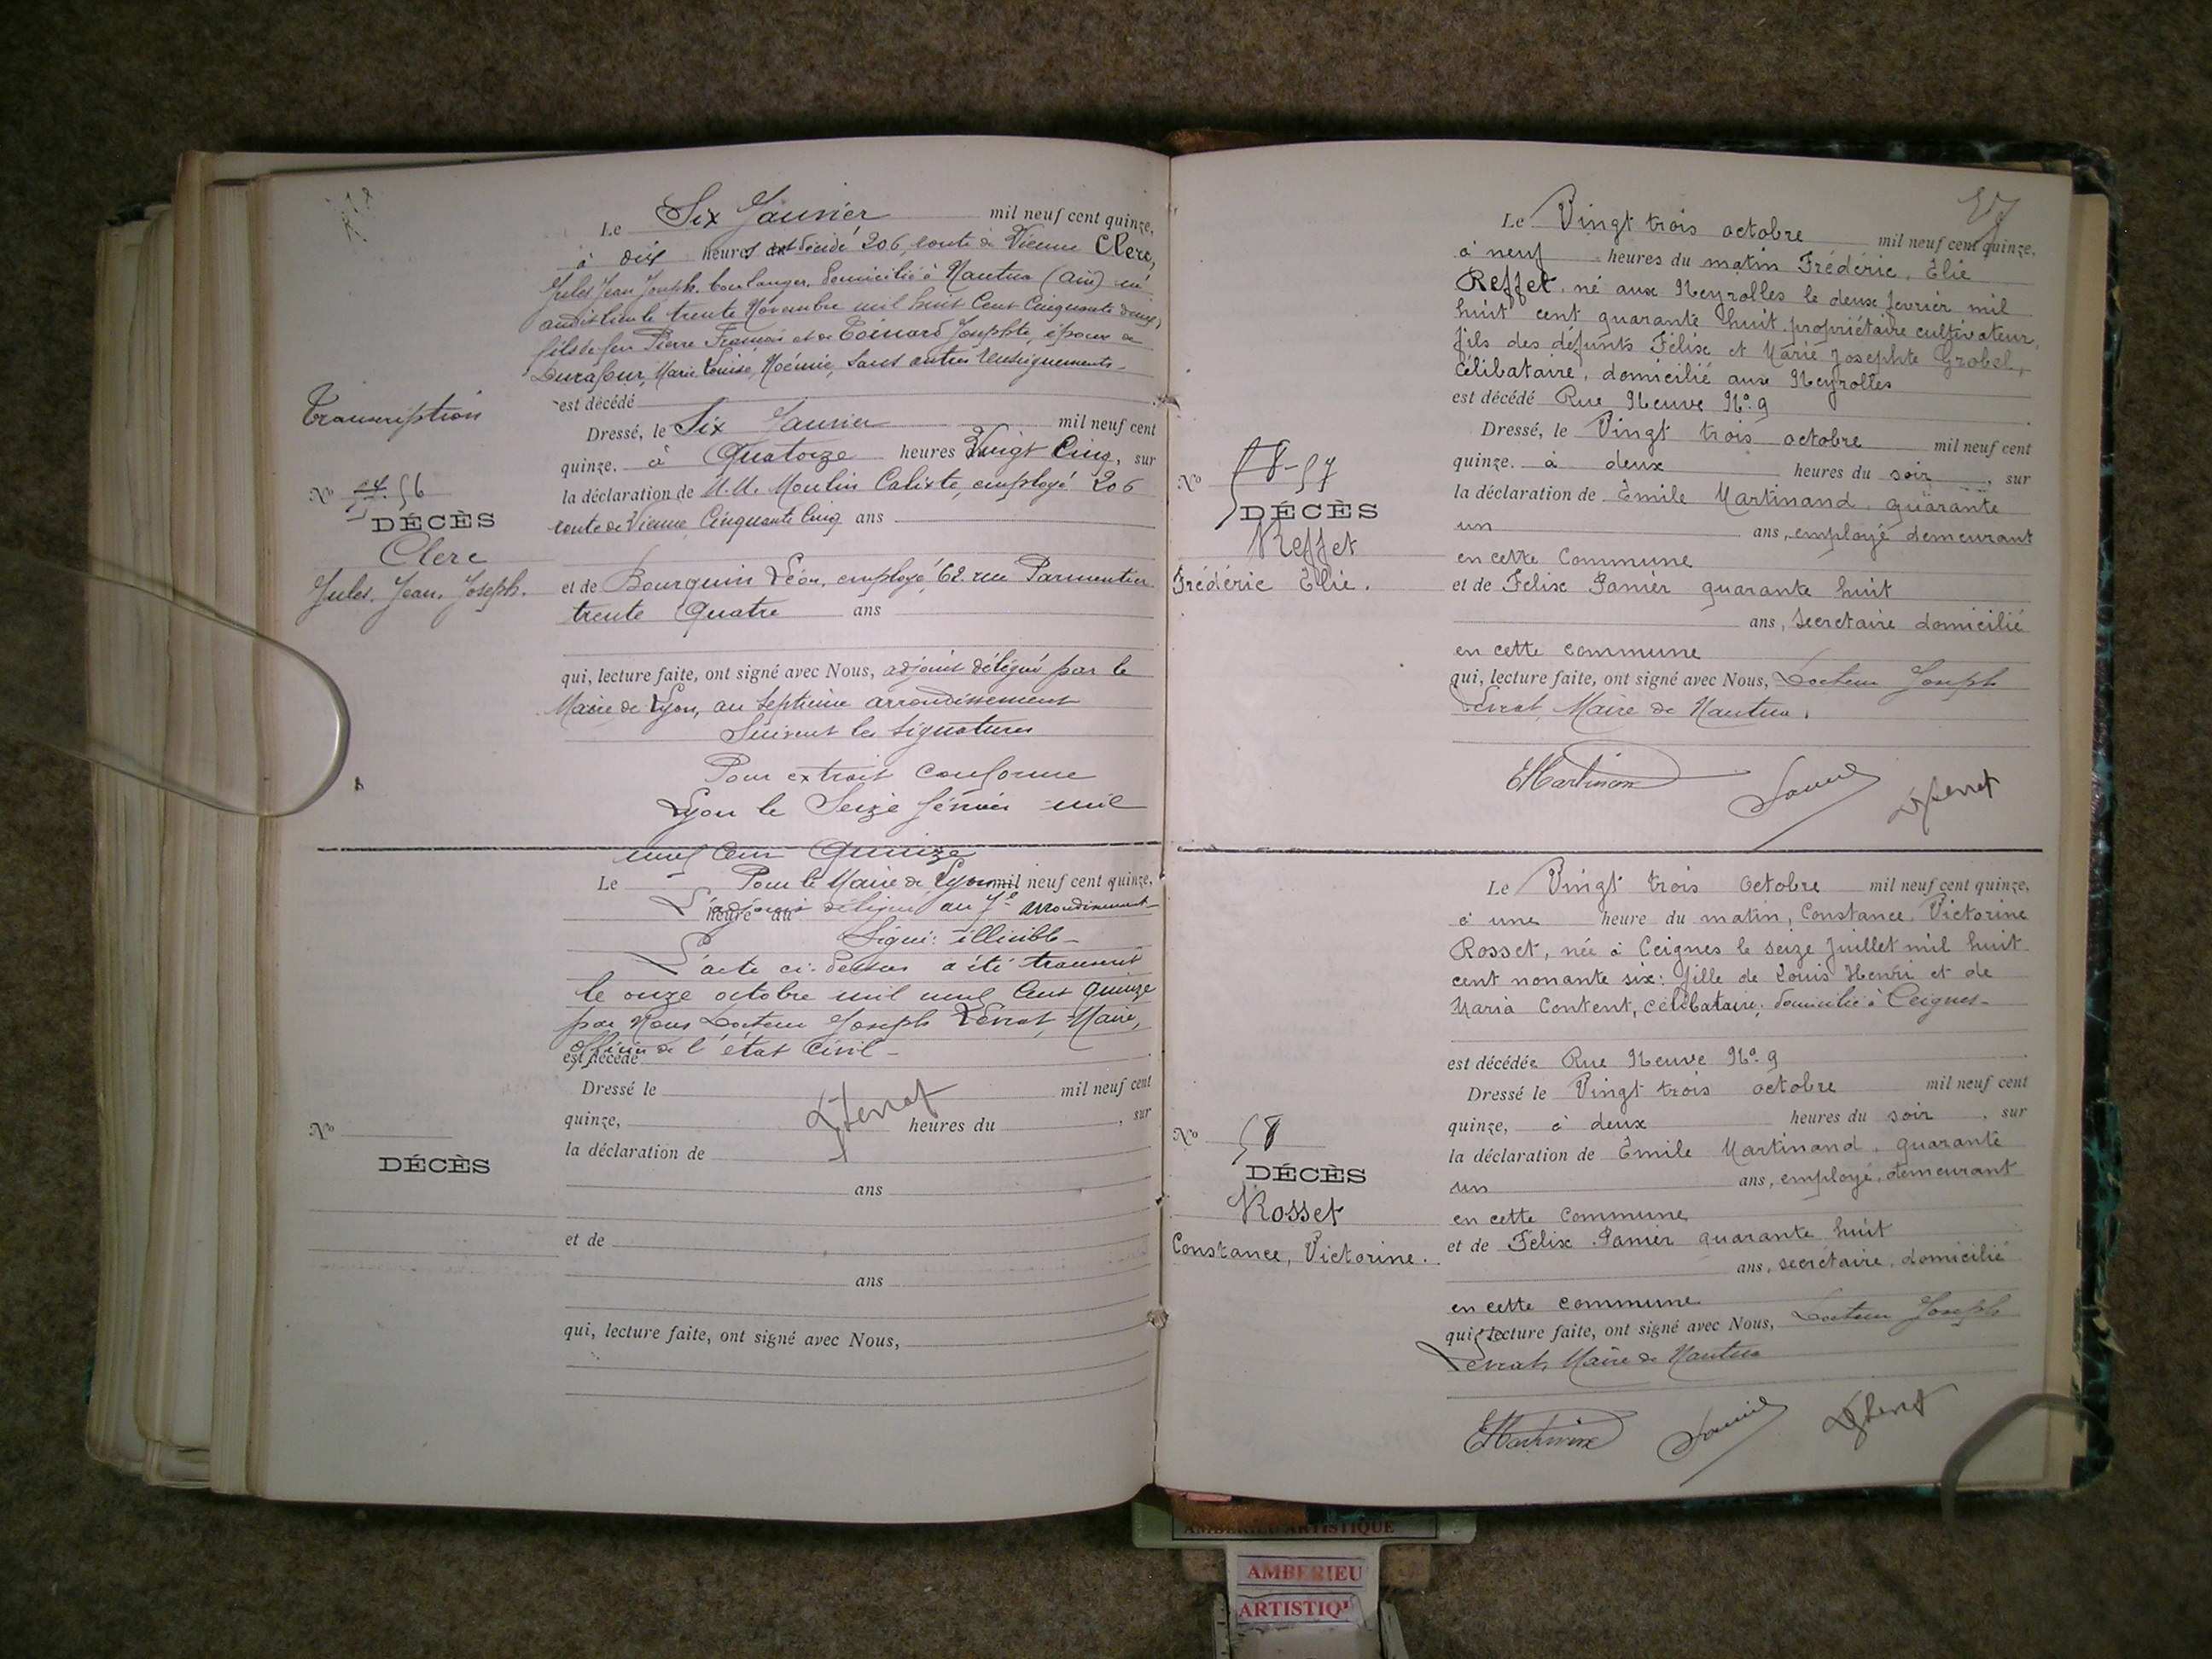 Le Six Janvier mil neuf cent quinze,
à dix heures est décédé 206, route de Vienne Clerc,
Jules Jean Joseph, boulanger, domicilié à Nantua (Ain) né
audit lieu le trente Novembre mil huit Cent Cinquante deux,
fils de feu Pierre François et de Josephte, époux de
Durafour, Marie Louise, Noémie, Sans autres renseignements
est décédé
Transcription
Dressé, le Six Janvier mil neuf cent
quinze. à Quatorze heures Vingt Cinq, sur
Nº 56
la déclaration de M.M. Moulin Calixte, employé 206
DÉCÈS
route de Vienne Cinquante Cinq ans
Clerc
Jules, Jean, Joseph.
et de Bourquin Léon, employé, 62 rue Parmentier
trente Quatre ans
qui, lecture faite, ont signé avec Nous, adjoint délégué par le
Maire de Lyon, au Septième arrondissement
Suivent les signatures
Pour extrait conforme
Lyon le Seize février mil
neuf Cent Quinze
Le Pour le Maire de Lyon mil neuf cent quinze,
L'adjoint délégué au 7e arrondissement
heure du
Signé: illisible
L'acte ci-dessus a été transcrit
le onze octobre mil neuf Cent Quinze
par Nous Docteur Joseph Levrat, Maire,
Officier de l'état Civil
est décédé
Dressé le mil neuf cent
quinze, heures du , sur
Nº
la déclaration de
DÉCÈS
ans
et de
ans
qui, lecture faite, ont signé avec Nous,
57
Le Vingt trois octobre mil neuf cent quinze,
à neuf heures du matin Frédéric, Élie
Reffet, né aux Neyrolles le deux février mil
huit cent quarante huit, propriétaire cultivateur,
fils des défunts Félix et Marie Josephte Grobel,
célibataire, domicilié aux Neyrolles
est décédé Rue Neuve Nº 9
Dressé, le Vingt trois octobre mil neuf cent
quinze. à deux heures du soir, sur
Nº 58-57
la déclaration de Émile Martinand, quarante
DÉCÈS
un ans, employé demeurant
Reffet
en cette Commune
Frédéric Élie.
et de Félix Panier quarante huit
ans, secrétaire domicilié
en cette commune
qui, lecture faite, ont signé avec Nous, Docteur Joseph
Levrat, Maire de Nantua.
Le Vingt trois Octobre mil neuf cent quinze,
à une heure du matin, Constance, Victorine
Rosset, née à Ceignes le seize Juillet mil huit
cent nonante six: fille de Louis Henri et de
Maria Content, célibataire, domiciliée à Ceignes
est décédée Rue Neuve Nº 9
Dressé le Vingt trois octobre mil neuf cent
quinze, à deux heures du soir, sur
Nº 58
la déclaration de Émile Martinand, quarante
DÉCÈS
un ans, employé, demeurant
Rosset
en cette Commune
Constance, Victorine.
et de Félix Panier quarante huit
ans, secrétaire, domicilié
en cette commune
qui, lecture faite, ont signé avec Nous, Docteur Joseph
Levrat, Maire de Nantua
AMBERIEU ARTISTIQUE
AMBERIEU
ARTISTIQ